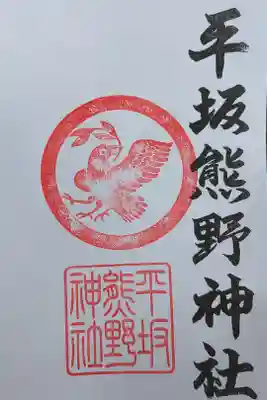 平坂熊野神社
平坂
熊野
神社